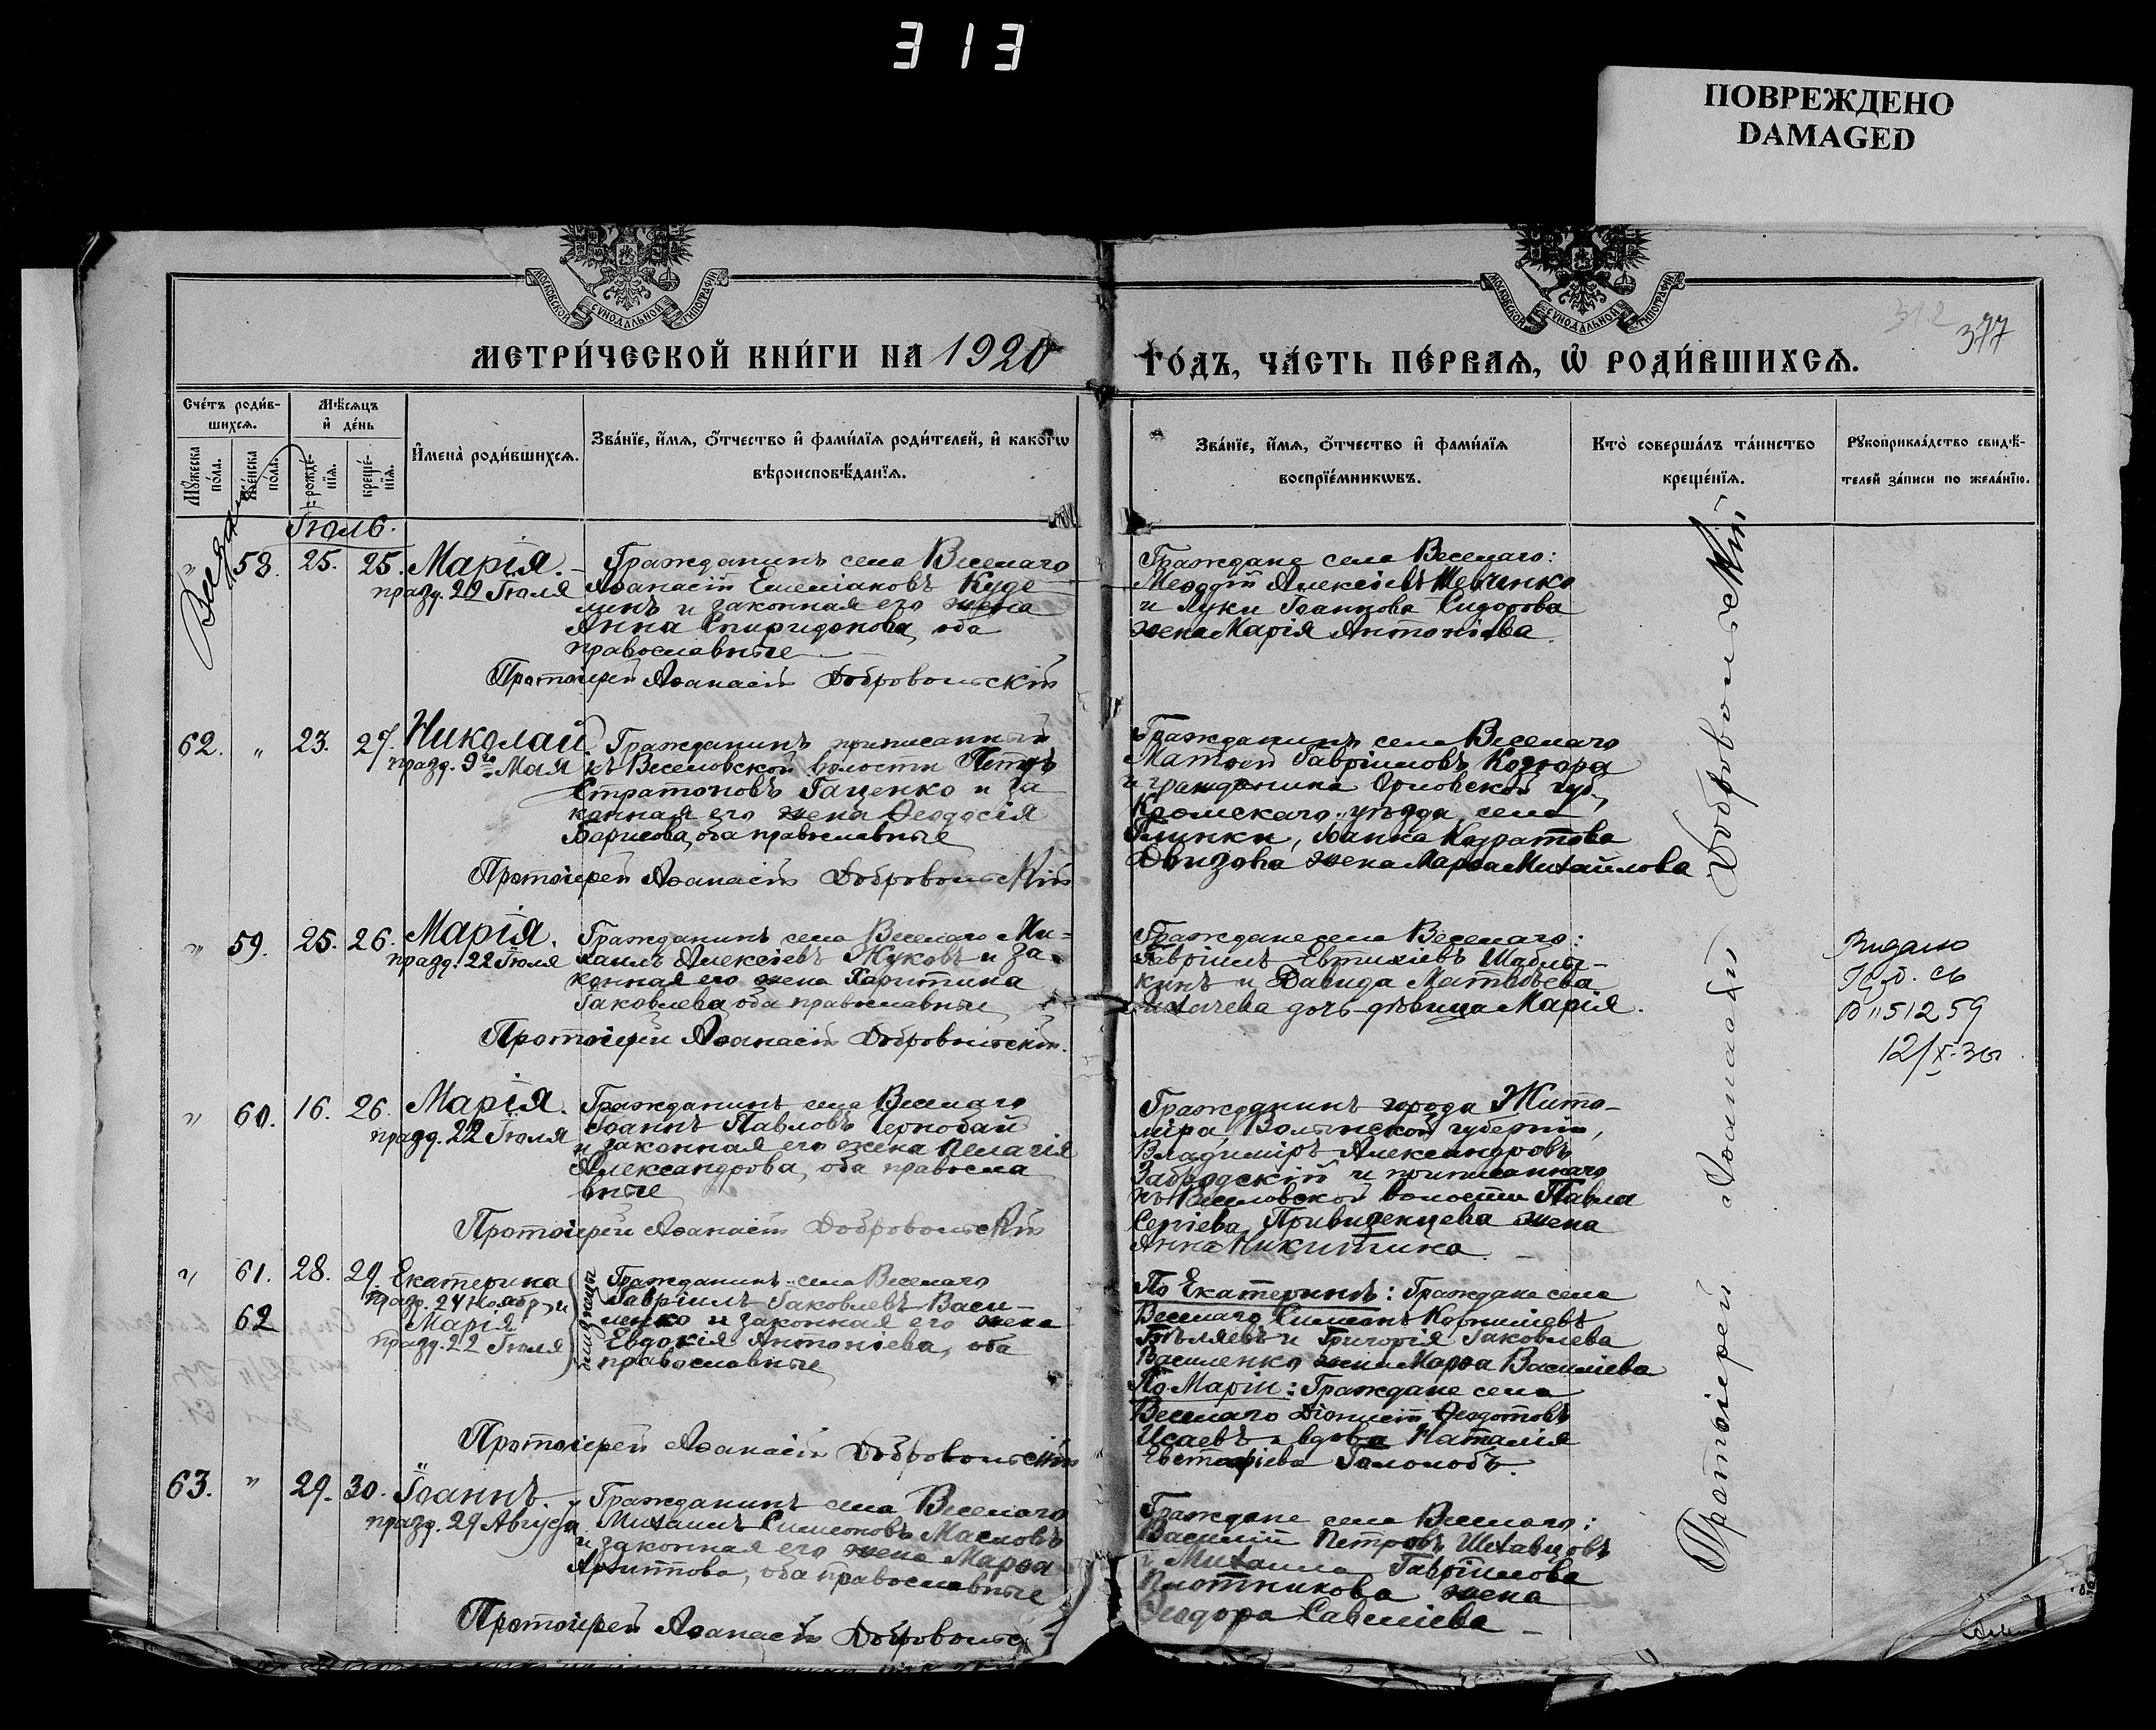 313
ПОВРЕЖДЕНО
DAMAGED
МОСКОВСКОЙ СѴНОДАЛЬНОЙ ТИПОГРАФИ
МОСКОВСКОЙ СѴНОДАЛЬНОЙ ТИПОГРАФИ
312
377
МЕТРИ́ЧЕСКОЙ КНИ́ГИ НА 1920
ГО́ДЪ, ЧА́СТЬ ПЕ́РВАѦ, Ѡ҆ РОДИ́ВШИХСѦ.
Сче́тъ роди́в-
шихсѧ.
Мꙋ́жеска
по́ла.
Же́нска
по́ла.
Мѣ́сѧцъ
и҆ де́нь
рожде́-
нїѧ.
креще́-
нїѧ.
И҆мена̀ роди́вшихсѧ.
Зва́нїе, и҆́мѧ, ѻ҆́тчество и҆ фами́лїѧ роди́телей, и҆ како́гѡ
вѣроисповѣ́данїѧ.
Зва́нїе, и҆́мѧ, ѻ҆́тчество и҆ фами́лїѧ
воспрїе́мникѡвъ.
Кто̀ соверша́лъ та́инство
креще́нїѧ.
Рꙋкоприкла́дство свидѣ́-
телей за́писи по жела́нїю.
Іюль.
" 58. 25. 25. Марія.
празд. 22 Іюля
Гражданинъ села Веселаго
Аѳанасій Емеліановъ Куде
линъ и законная его жена
Анна Спиридонова, оба
православные
Протоіерей Аѳанасій Добровольскій
Граждане села Веселаго:
Меѳодій Алексіевъ Шевченко
и Луки Іоаннова Сидорова
жена Марія Антоніева
62. " 23. 27. Николай
празд. 9го Мая
Гражданинъ приписанный
къ Веселовской волости Петръ
Стратоновъ Гаценко и за
конная его жена Ѳеодосія
Борисова, оба православные
Протоіерей Аѳанасій Добровольскій
Гражданинъ села Веселаго
Матѳей Гавріиловъ Козюра
и гражданина Орловской губ.,
Кромскаго уѣзда, села
Глинки, Іоанна Кодратова
жена Марѳа Михайлова
" 59. 25. 26. Марія.
празд. 22 Іюля
Гражданинъ села Веселаго Ми-
хаилъ Алексіевъ Жуковъ и за-
конная его жена Харитина
Іаковлева, оба православные
Протоіерей Аѳанасій Добровольскій.
Граждане села Веселаго:
Гавріилъ Евтихіевъ
и Давида Матвѣева
дочь-дѣвица Марія.
Видано
51259
" 60. 16. 26. Марія.
празд. 22 Іюля
Гражданинъ села Веселаго
Іоаннъ Павловъ Чернобай
и законная его жена Пелагія
Александрова, оба правосла
вные
Протоіерей Аѳанасій Добровольскій
Гражданинъ города Жито-
міра, Волынской губерніи,
Владиміръ Александровъ
Забродскій и приписаннаго
къ Веселовской волости Павла
Сергіева Привиденцева жена
Анна Никитина
" 61. 28. 29. Екатерина
празд. 24 Ноябр. и
62 Марія
празд. 22 Іюля
близнецы
Гражданинъ села Веселаго
Гавріилъ Іаковлевъ Васи-
ленко и законная его жена
Евдокія Антоніева, оба
православные
Протоіерей Аѳанасій Добровольскій
По Екатеринѣ: Граждане села
Веселаго Симеонъ Корниліевъ
Бѣляевъ и Григорія Іаковлева
Василенко жена Марѳа Василіева
По Маріи: Граждане села
Веселаго Діонисій Ѳедотовъ
Исаевъ и вдова Наталія
ЕвстафіеваГололобъ.
63. " 29. 30. Іоаннъ.
празд. 29 Августа
Гражданинъ села Веселаго
Михаилъ Симеоновъ Масловъ
и законная его жена Марѳа
оба православные
Протоіерей Аѳанасій
Граждане села Веселаго:
Василій Петровъ Шехавцовъ
и Михаила Гавріилова
Плотникова жена
Ѳеодора Савеліева
Протоіерей Аѳанасій Добровольскій